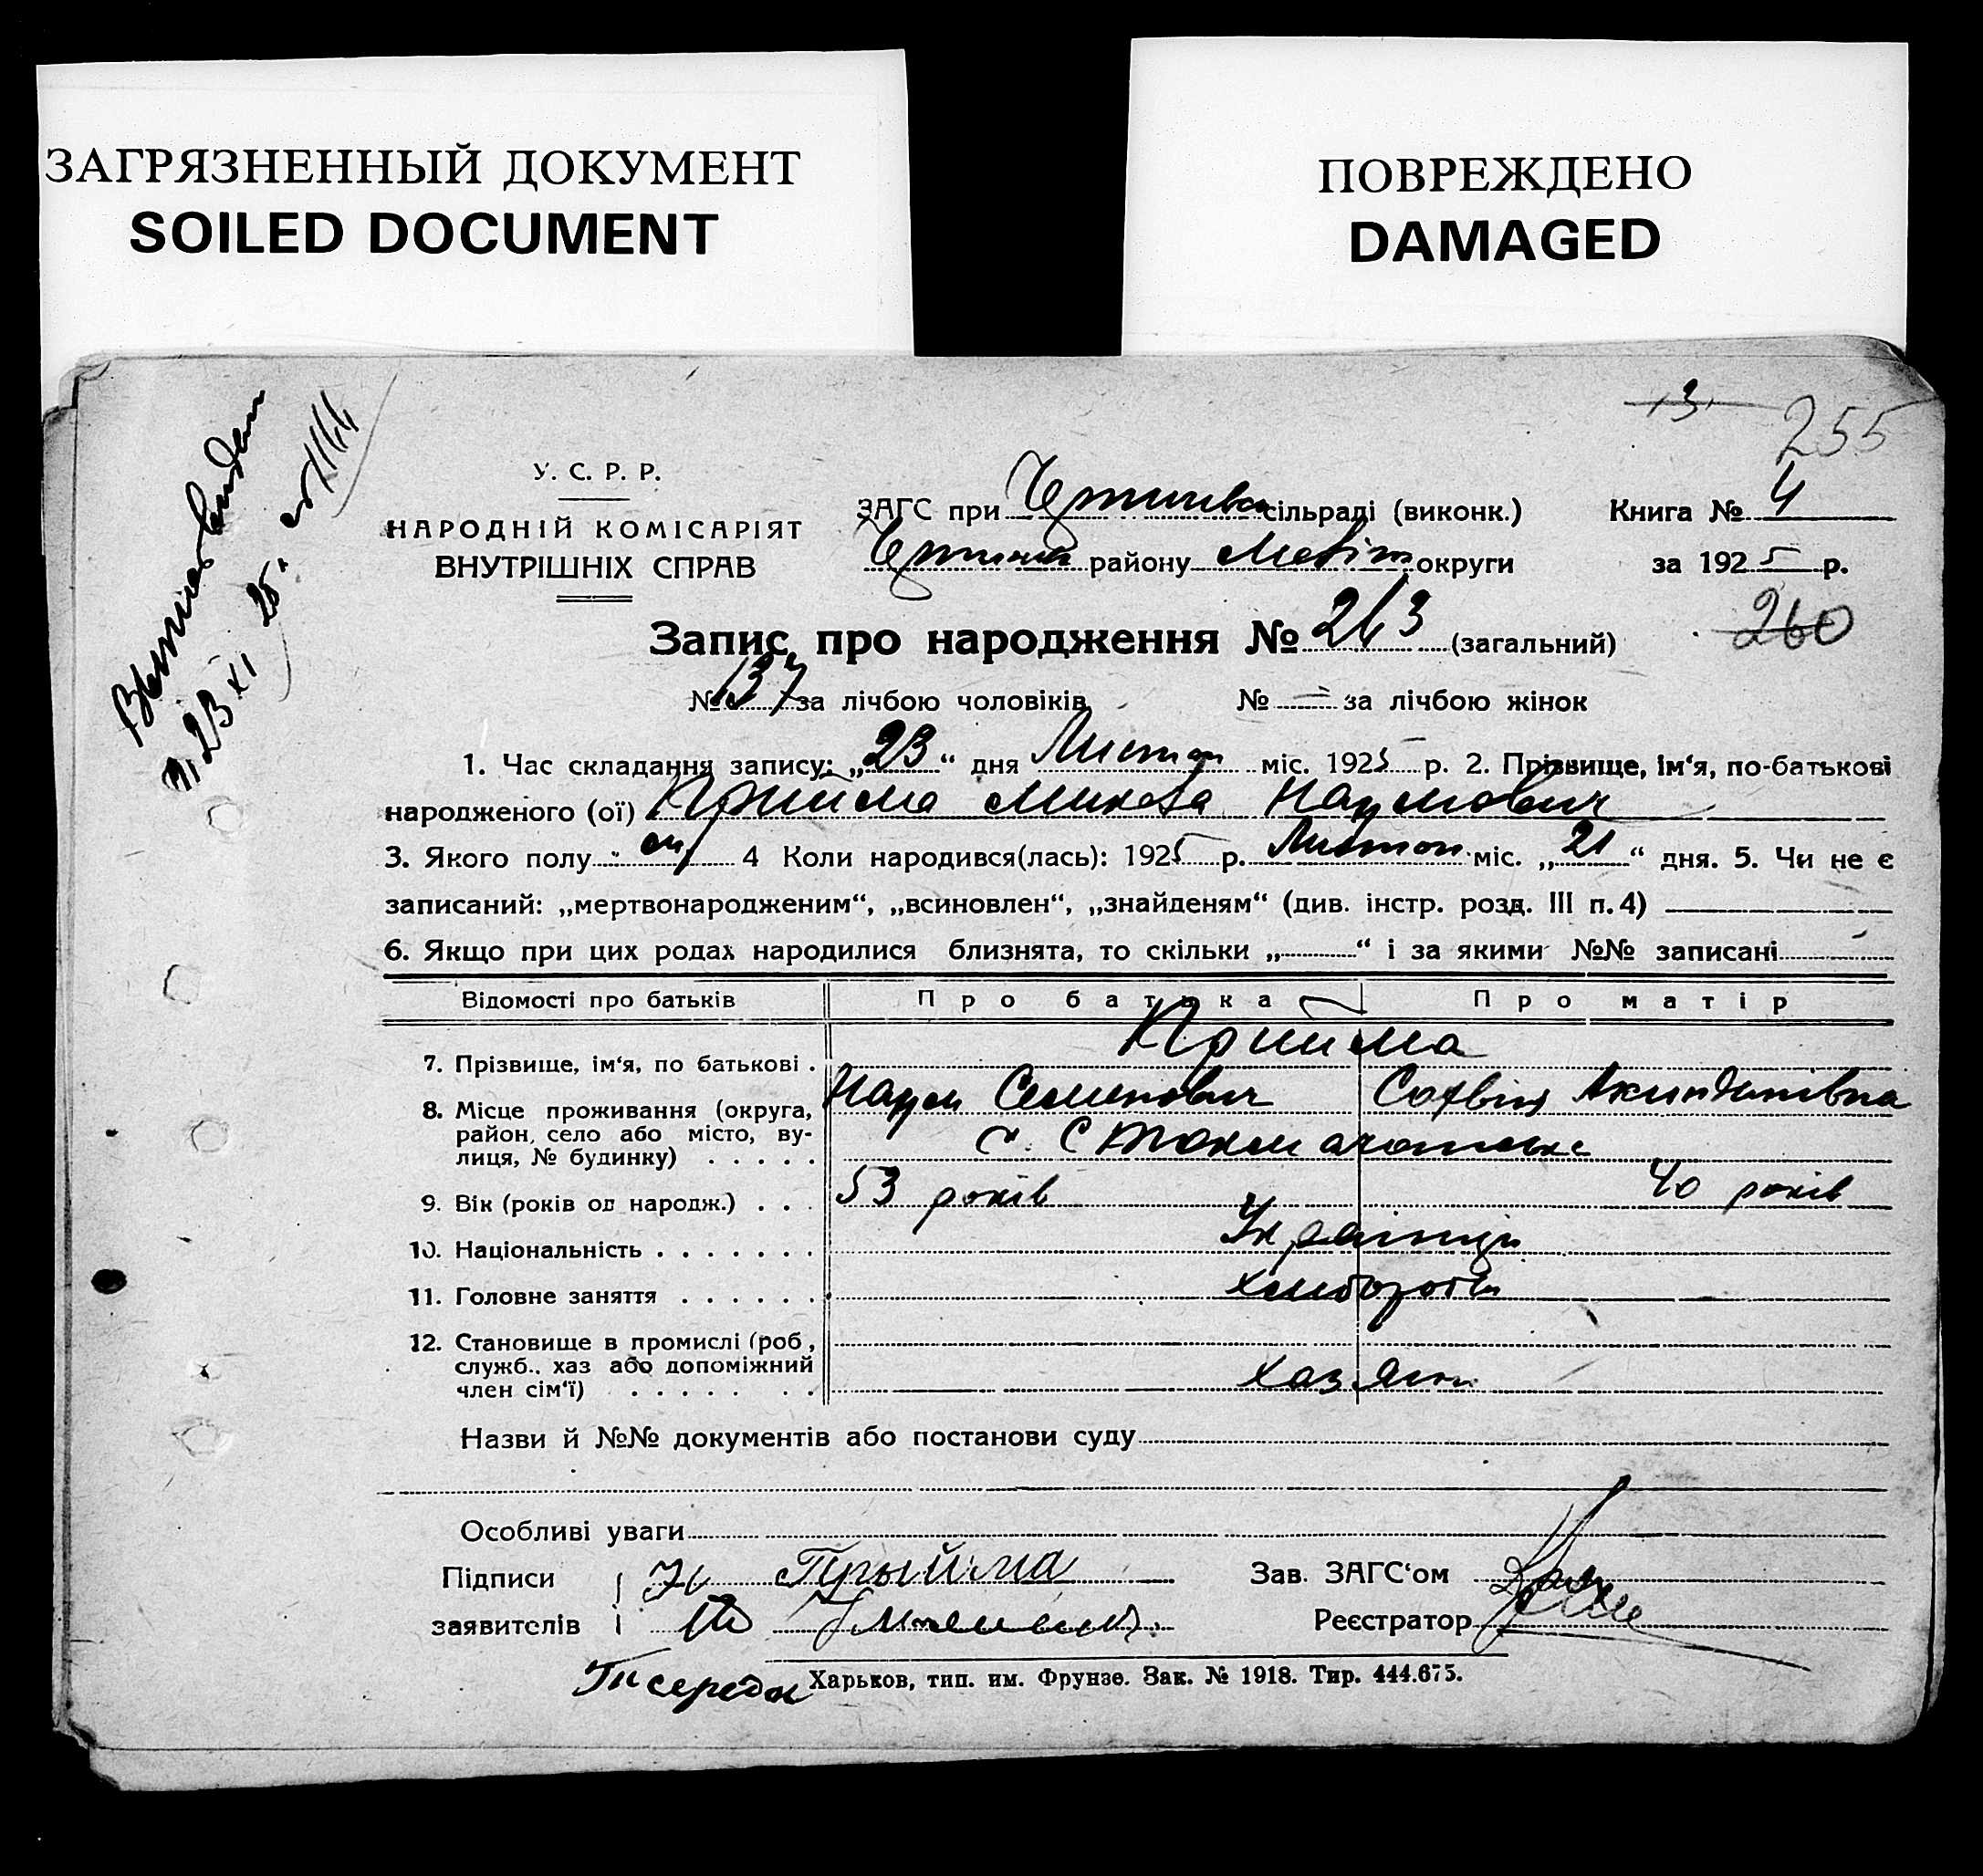 ЗАГРЯЗНЕННЫЙ ДОКУМЕНТ
SOILED DOCUMENT
ПОВРЕЖДЕНО
DAMAGED
13
255
У. С. Р. Р.
НАРОДНІЙ КОМІСАРІЯТ
ВНУТРІШНІХ СПРАВ
ЗАГС при сільраді (виконк.)
Книга № 4
району Меліт округи
за 1925 р.
Запис про народження № 263 (загальний)
260
№ 137 за лічбою чоловіків
№ — за лічбою жінок
23 XI 25
1. Час складання запису: „23“ дня Листоп міс. 1925 р. 2. Прізвище, ім‘я, по-батькові
народженого (ої) Приима Микола Наумович
3. Якого полу 4 Коли народився(лась): 1925 р. Листоп міс. „21“ дня. 5. Чи не є
записаний: „мертвонародженим“, „всиновлен“, „знайденям“ (див. інстр. розд. III п. 4)
6. Якщо при цих родах народилися близнята, то скільки „ “ і за якими №№ записані
Відомості про батьків
Про батька
Про матір
Приима
7. Прізвище, ім‘я, по батькові .
Наум Семенович Софвія Акиндинівна
8. Місце проживання (округа,
район, село або місто, ву-
лиця, № будинку) . . . . .
с.
9. Вік (років од народж.) . . . 53 років 40 років
10. Національність . . . . . . . Українці
11. Головне заняття . . . . . . хлібороби
12. Становище в промислі (роб,
служб., хаз або допоміжний
член сім‘ї) . . . . . . . хазяїн
Назви й №№ документів або постанови суду
Особливі уваги
Підписи Прыйма
Зав. ЗАГС‘ом
заявителів
Реєстратор
Харьков, тип. им. Фрунзе. Зак. № 1918. Тир. 444.675.